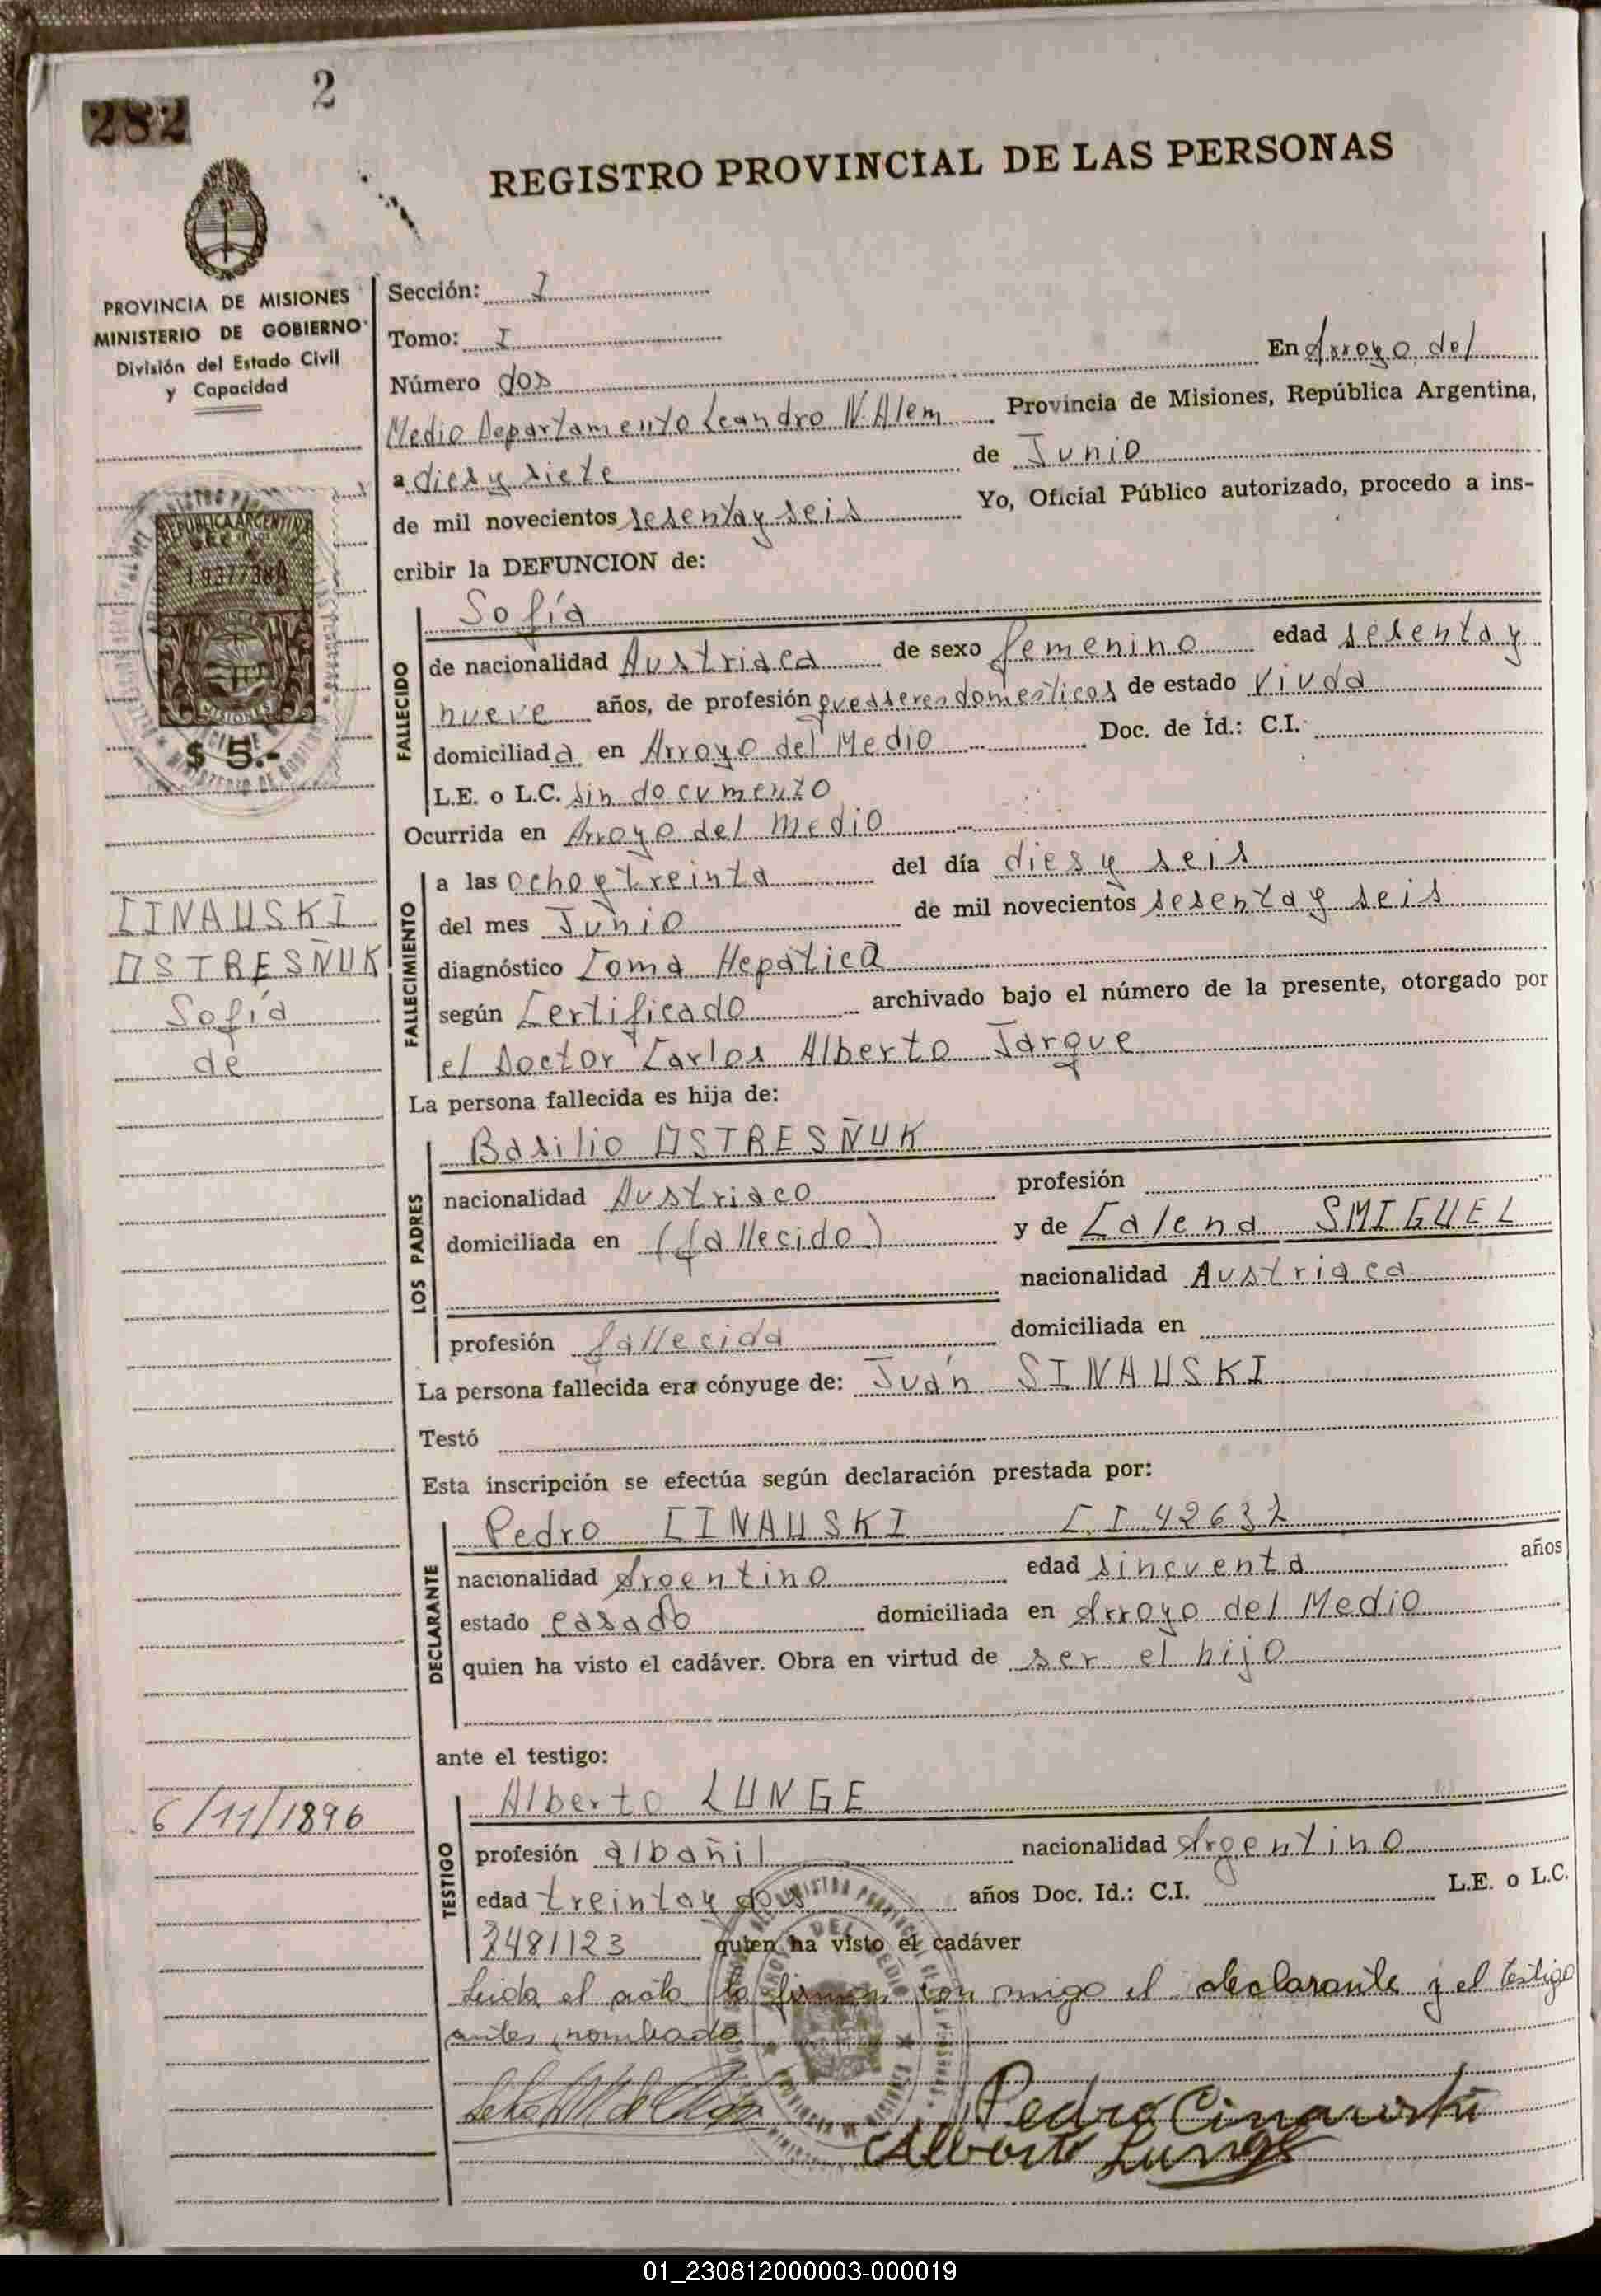 2
282
REGISTRO PROVINCIAL DE LAS PERSONAS
PROVINCIA DE MISIONES
MINISTERIO DE GOBIERNO
División del Estado Civil
y Capacidad
REPUBLICA ARGENTINA
MISIONES
$ 5.-
CINAUSKI
OSTRESÑUK
Sofía
de
6/11/1896
Sección: I
Tomo: I
Número dos En Arroyo del
Medio Departamento Leandro N. Alem Provincia de Misiones, República Argentina,
a dies y siete de Junio
de mil novecientos sesenta y seis Yo, Oficial Público autorizado, procedo a ins-
cribir la DEFUNCION de:
FALLECIDO
Sofía
de nacionalidad Austriaca de sexo femenino edad sesenta y
nueve años, de profesión queaseres domesticos de estado Viuda
domiciliada en Arroyo del Medio Doc. de Id.: C.I.
L.E. o L.C. sin documento
Ocurrida en Arroyo del Medio
FALLECIMIENTO
a las ocho y treinta del día dies y seis
del mes Junio de mil novecientos sesenta y seis
diagnóstico Coma Hepática
según Certificado archivado bajo el número de la presente, otorgado por
el Doctor Carlos Alberto Jarque
La persona fallecida es hija de:
LOS PADRES
Basilio OSTRESÑUK
nacionalidad Austriaco profesión
domiciliada en (fallecido) y de Calena SMIGUEL
nacionalidad Austriaca
profesión fallecida domiciliada en
La persona fallecida era cónyuge de: Juán SINAUSKI
Testó
Esta inscripción se efectúa según declaración prestada por:
DECLARANTE
Pedro CINAUSKI C I 42632
nacionalidad Argentino edad sincuenta años
estado casado domiciliada en Arroyo del Medio
quien ha visto el cadáver. Obra en virtud de ser el hijo
ante el testigo:
TESTIGO
Alberto LUNGE
profesión albañil nacionalidad Argentino
edad treinta y dos años Doc. Id.: C.I. L.E. o L.C.
7481123 quien ha visto el cadáver
Leida el acta la firman con migo el declarante y el testigo
antes nombado
Pedro Cinauski
Alberto Lunge
01_230812000003-000019